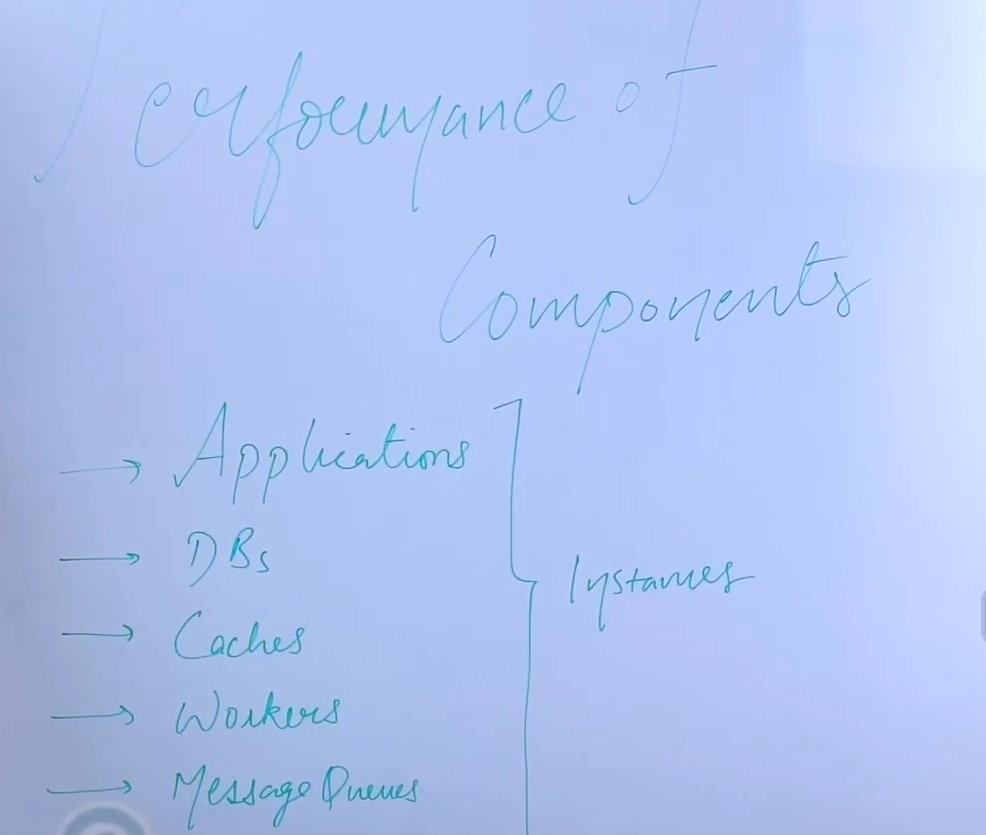 Performance of
Components
→ Applications
→ DBs
→ Caches
→ Workers
→ Message Queues
Instances